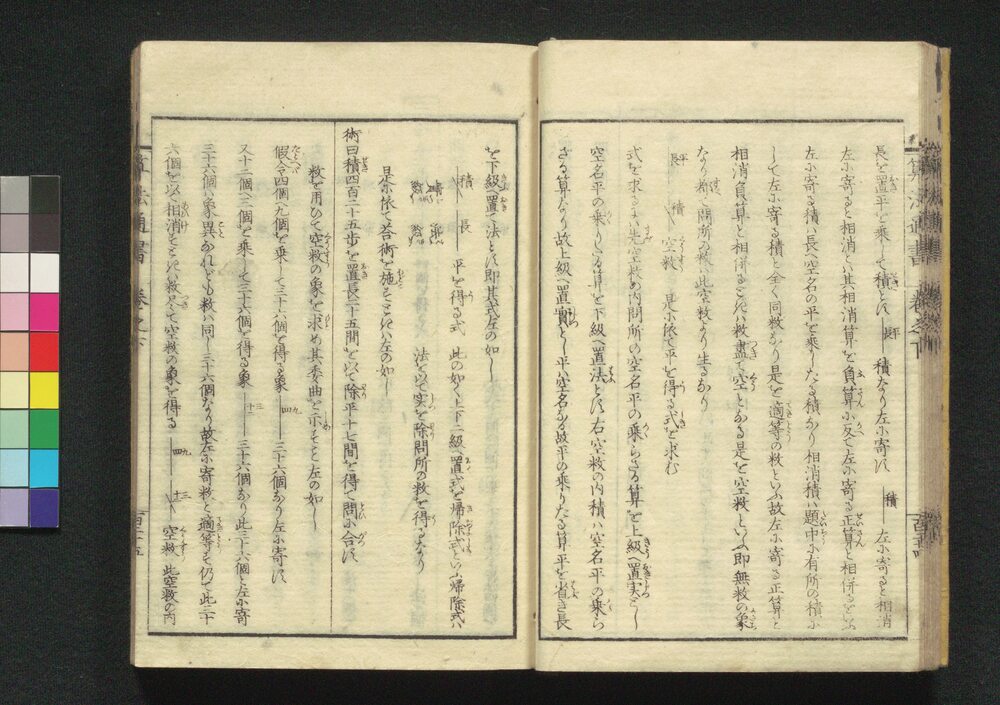 長を置平を乗して積とす 長平 積なり左に寄す 積 左に寄ると相消
左に寄ると相消しハ其相消算を負算に反て左に寄る正算と相併るをいふ
左に寄る積ハ長へ空名の平を乗したる積なり相消積ハ題中に有所の積に
して左に寄る積と全く同数なり是を適等の数といふ故左に寄る正算と
相消負算と相併るときハ数盡て空となる是を空数といふ即無数の象
なり都て問所の数ハ此空数より生るなり
長平 積 空数 是に依て平を得る式を求む
式を求るにハ先空数の内問所の空名平の乗らさる算を上級へ置実とし
空名平の乗りたる算を下級へ置法とす右空数の内積ハ空名平の乗ら
さる算なり故上級へ置實とし平ハ空名なる故平の乗りたる算平を省き長
を下級へ置て法とす即其式左の如し
積 長 平を得る式 此の如く上下二級へ置式を帰除式といふ帰除式ハ
法を以て実を除問所の数を得るなり
是に依て答術を施すときハ左の如し
術曰積四百二十五歩を置長二十五間を以て除平十七間を得て問に合す
数を用ひて空数の象を求め其委曲を示すこと左の如し
假令四個へ九個を乗して三十六個を得る象 四九 三十六個なり左に寄す
又十二個へ三個を乗して三十六個を得る象 十二三 三十六個なり此三十六個と左に寄
三十六個ハ象異なれとも数ハ同し三十六個なり故左に寄数と適等す仍て此三十
六個を以て相消すときハ数尽て空数の象を得る 四九 十二三 空数 此空数の内
算法通書 巻之下